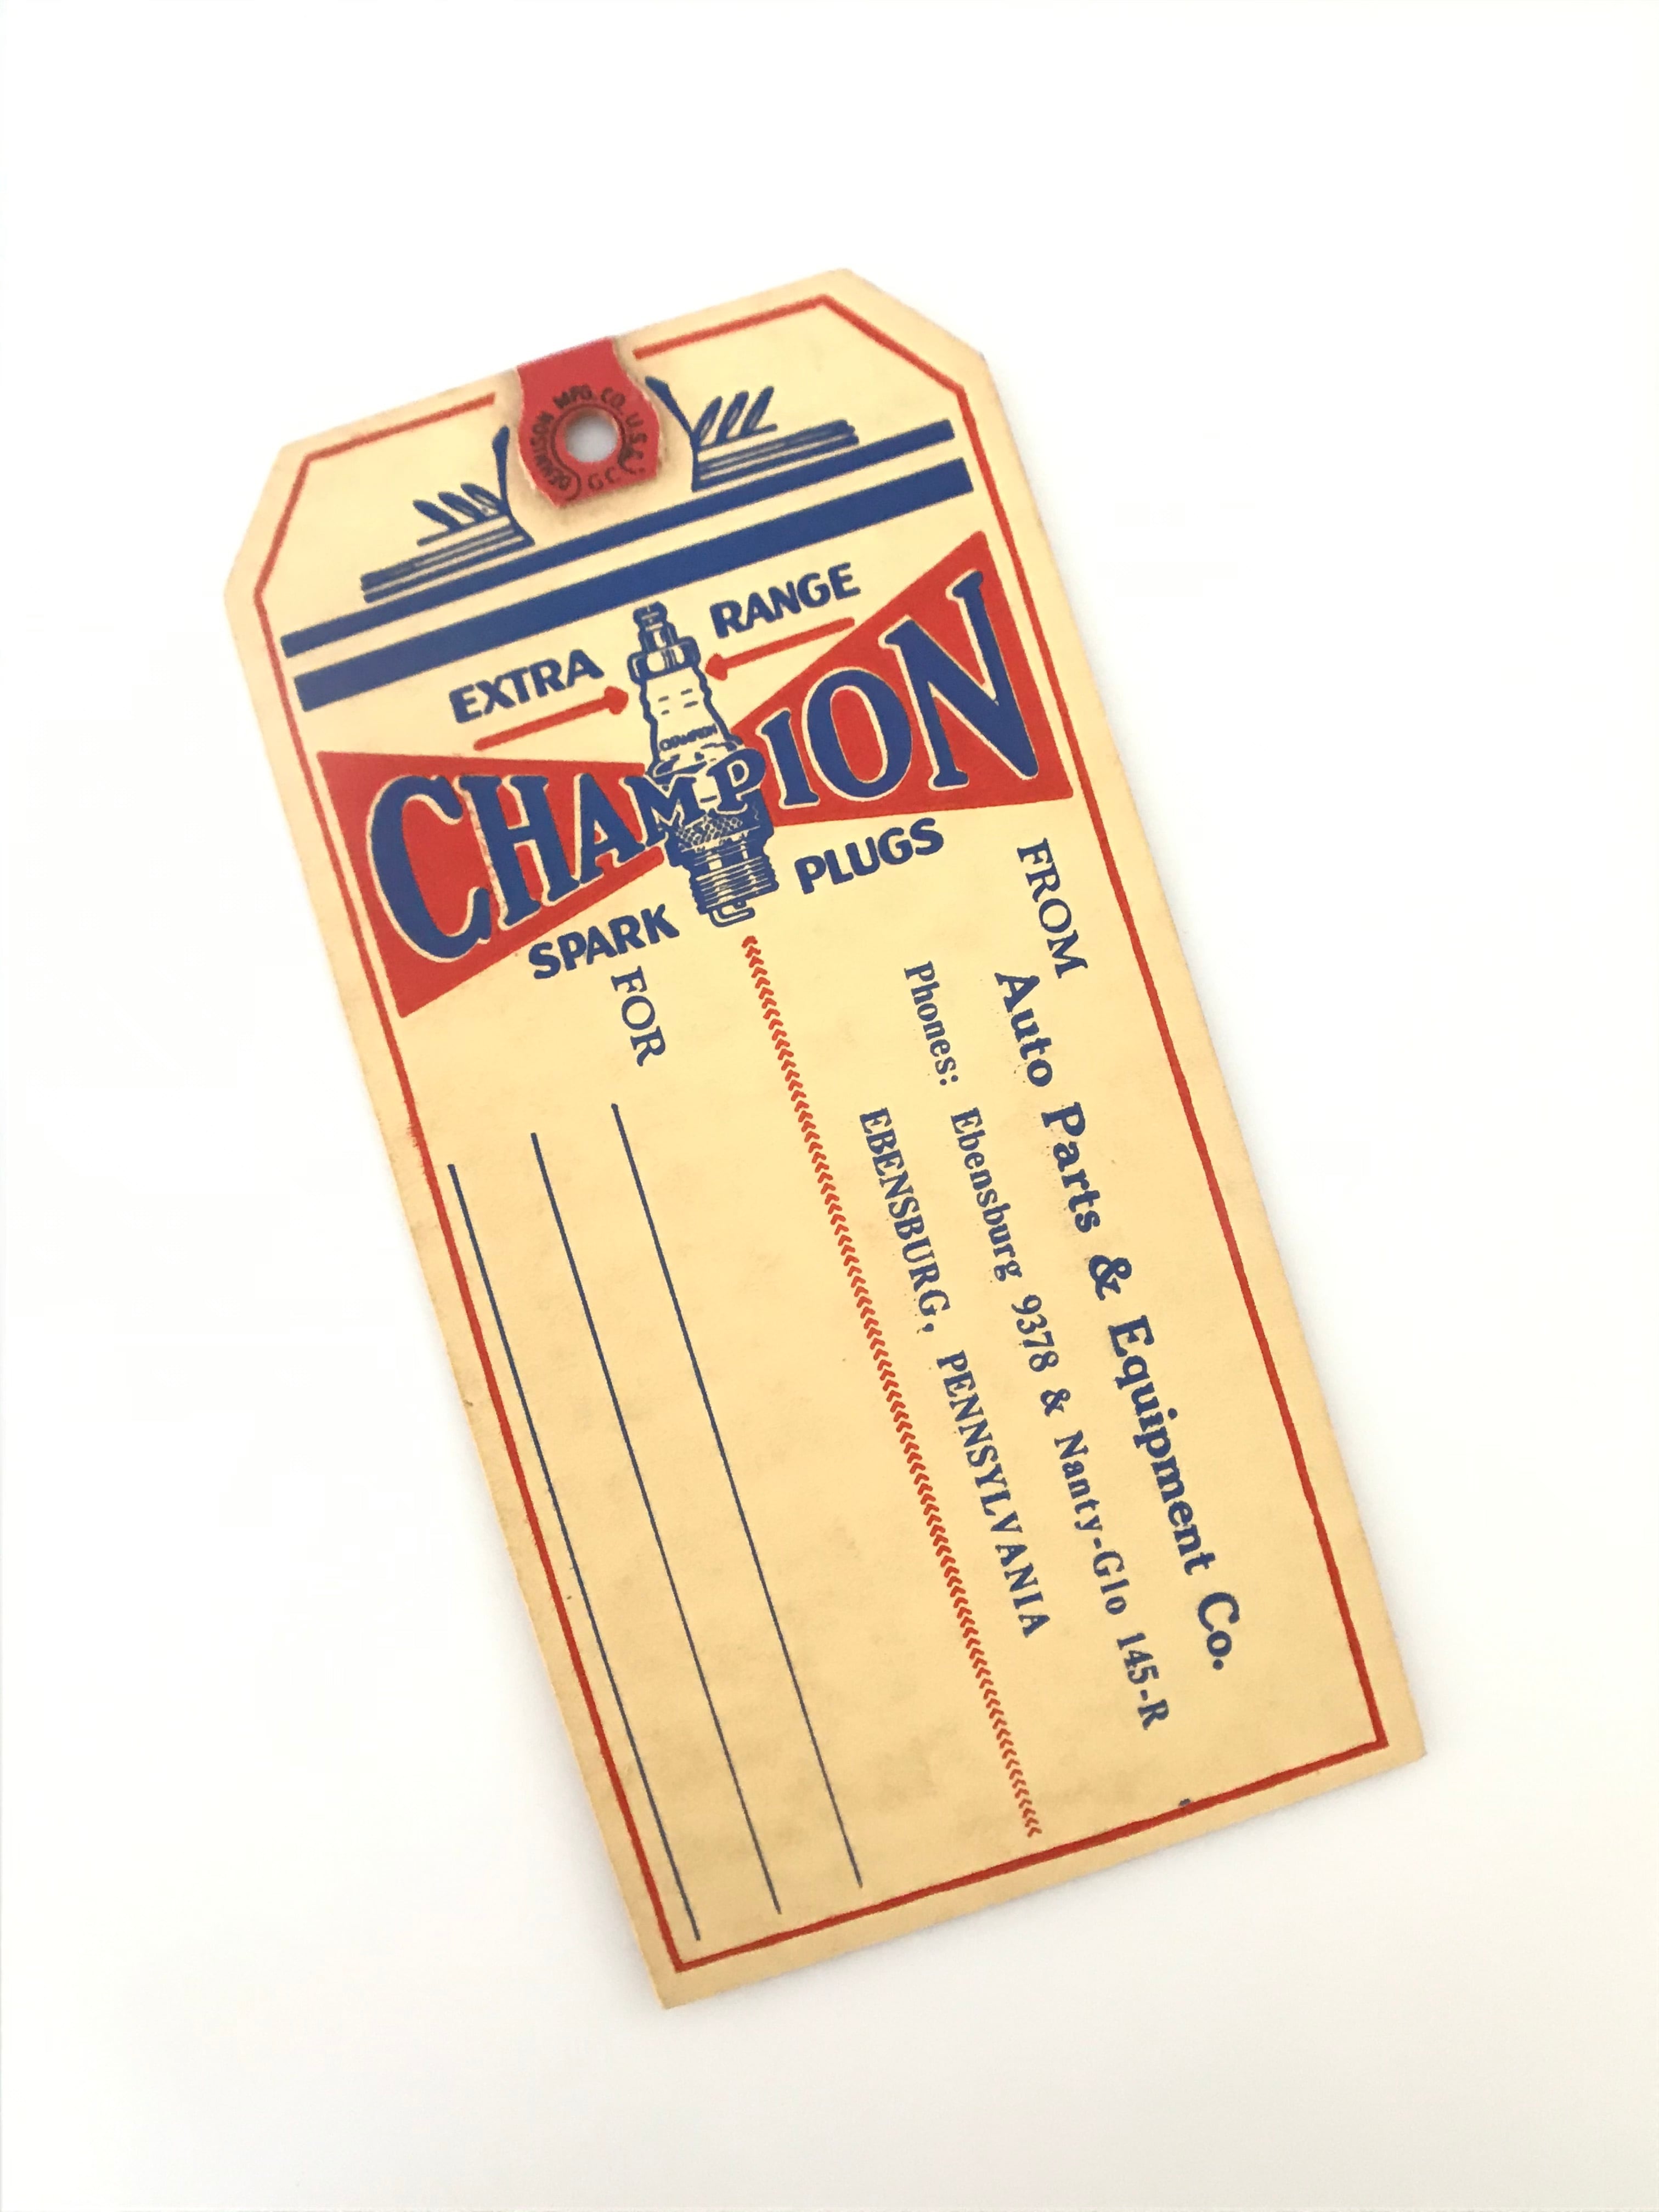 DENNISON MFG. CO. U.S.A.
G.C.
EXTRA RANGE
CHAMPION
CHAMPION
SPARK PLUGS
FROM
Auto Parts & Equipment Co.
Phones: Ebensburg 9378 & Nanty-Glo 145-R
EBENSBURG, PENNSYLVANIA
FOR